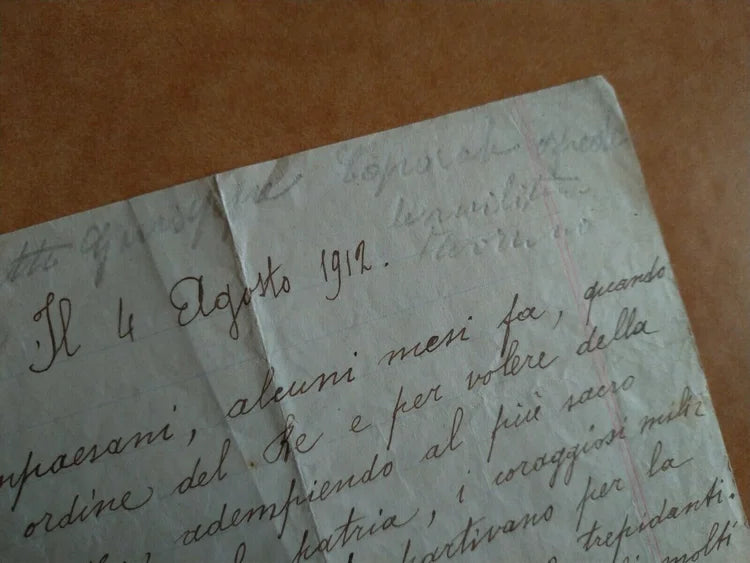 Giuseppe Caporale
Il 4 Agosto 1912.
mpaesani, alcuni mesi fa, quando
ordine del Re e per volere della
adempiendo al più sacro
patria, i coraggiosi
partivano per la
trepidanti.
molti